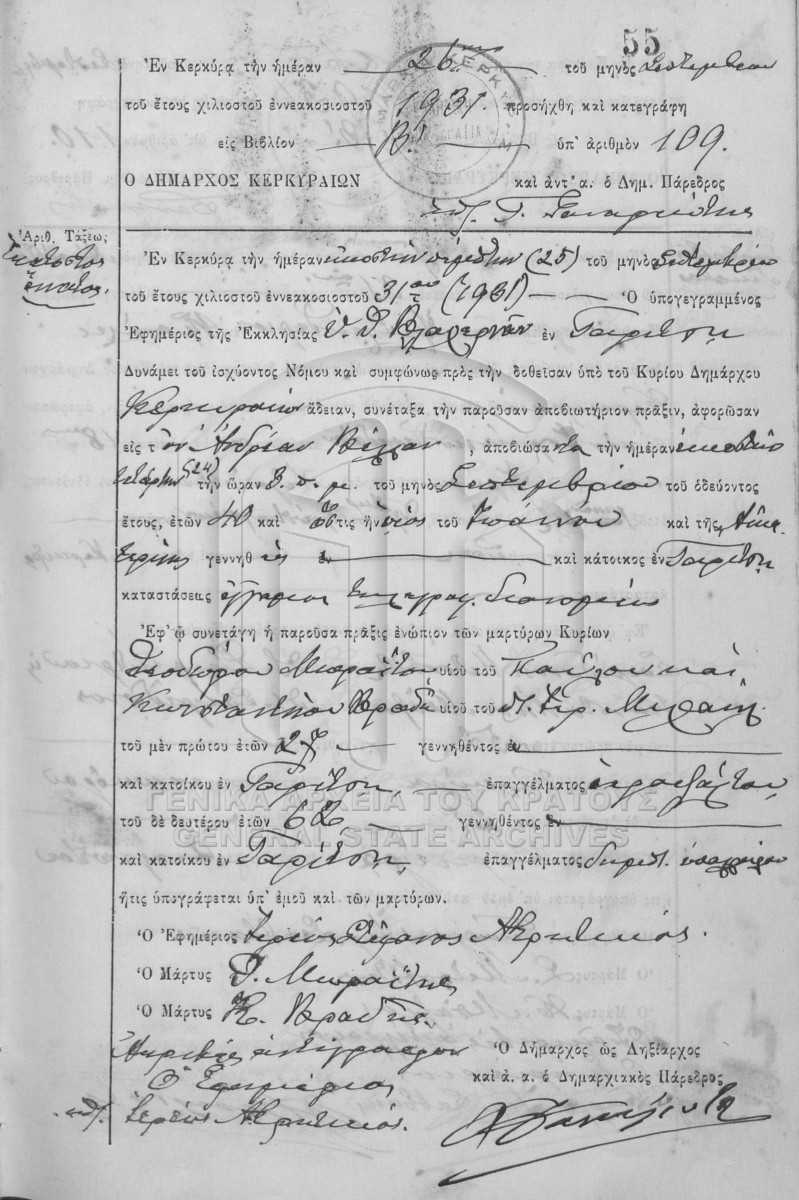 55
Ἐν Κερκύρᾳ τὴν ἡμέραν 26 τοῦ μηνὸς Σεπτεμβρίου
τοῦ ἔτους χιλιοστοῦ ἐννεακοσιοστοῦ 1931. προσήχθη καὶ κατεγράφη
εἰς Βιβλίον Β. ὑπ' ἀριθμὸν 109.
Ο ΔΗΜΑΡΧΟΣ ΚΕΡΚΥΡΑΙΩΝ καὶ ἀντ' α. ὁ Δημ. Πάρεδρος
Ἀριθ. Τάξεως
Ἑκατοστὸς
ἔννατος.
Ἐν Κερκύρᾳ τὴν ἡμέραν εἰκοστὴν πέμπτην (25) τοῦ μηνὸς Σεπτεμβρίου
τοῦ ἔτους χιλιοστοῦ ἐννεακοσιοστοῦ 31ου (1931) Ὁ ὑπογεγραμμένος
Ἐφημέριος τῆς Ἐκκλησίας Ὑ. Θ. Βλαχερνῶν ἐν Γαρίτσῃ
Δυνάμει τοῦ ἰσχύοντος Νόμου καὶ συμφώνως πρὸς τὴν δοθεῖσαν ὑπὸ τοῦ Κυρίου Δημάρχου
Κερκυραίων ἄδειαν, συνέταξα τὴν παροῦσαν ἀποβιωτήριον πρᾶξιν, ἀφορῶσαν
εἰς τ ὸν Ἀνδρέαν Βέλλαν, ἀποβιώσαντα τὴν ἡμέραν εἰκοστὴν
τετάρτην (24) τὴν ὥραν 3. π. μ. τοῦ μηνὸς Σεπτεμβρίου τοῦ ὁδεύοντος
ἔτους, ἐτῶν 40 καὶ ὅστις ἦν υἱὸς τοῦ Ἰωάννου καὶ τῆς Αἰκα
τερίνης γεννηθεὶς ἐν καὶ κάτοικος ἐν Γαρίτσῃ
καταστάσεως ἔγγαμος
Ἐφ' ᾧ συνετάγη ἡ παροῦσα πρᾶξις ἐνώπιον τῶν μαρτύρων Κυρίων
Θεοδώρου Μωραΐτου υἱοῦ τοῦ Παύλου καὶ
Κωνσταντίνου Βραδῆ υἱοῦ τοῦ Μιχαὴλ
τοῦ μὲν πρώτου ἐτῶν 27 γεννηθέντος ἐν
καὶ κατοίκου ἐν Γαρίτσῃ, ἐπαγγέλματος ἱεροψάλτου,
τοῦ δὲ δευτέρου ἐτῶν 62 γεννηθέντος ἐν
καὶ κατοίκου ἐν Γαρίτσῃ, ἐπαγγέλματος δημοτ. ὑπαλλήλου
ἥτις ὑπογράφεται ὑπ' ἐμοῦ καὶ τῶν μαρτύρων.
Ὁ Ἐφημέριος Ἱερεὺς Στέφανος
Ὁ Μάρτυς Θ. Μωραΐτης
Ὁ Μάρτυς Κ. Βραδῆς.
Ἀκριβὲς ἀντίγραφον
Ὁ Ἐφημέριος
Ἱερεὺς
Ὁ Δήμαρχος ὡς Ληξίαρχος
καὶ ἀ. ἀ. ὁ Δημαρχιακὸς Πάρεδρος
ΓΕΝΙΚΑ ΑΡΧΕΙΑ ΤΟΥ ΚΡΑΤΟΥΣ
GENERAL STATE ARCHIVES